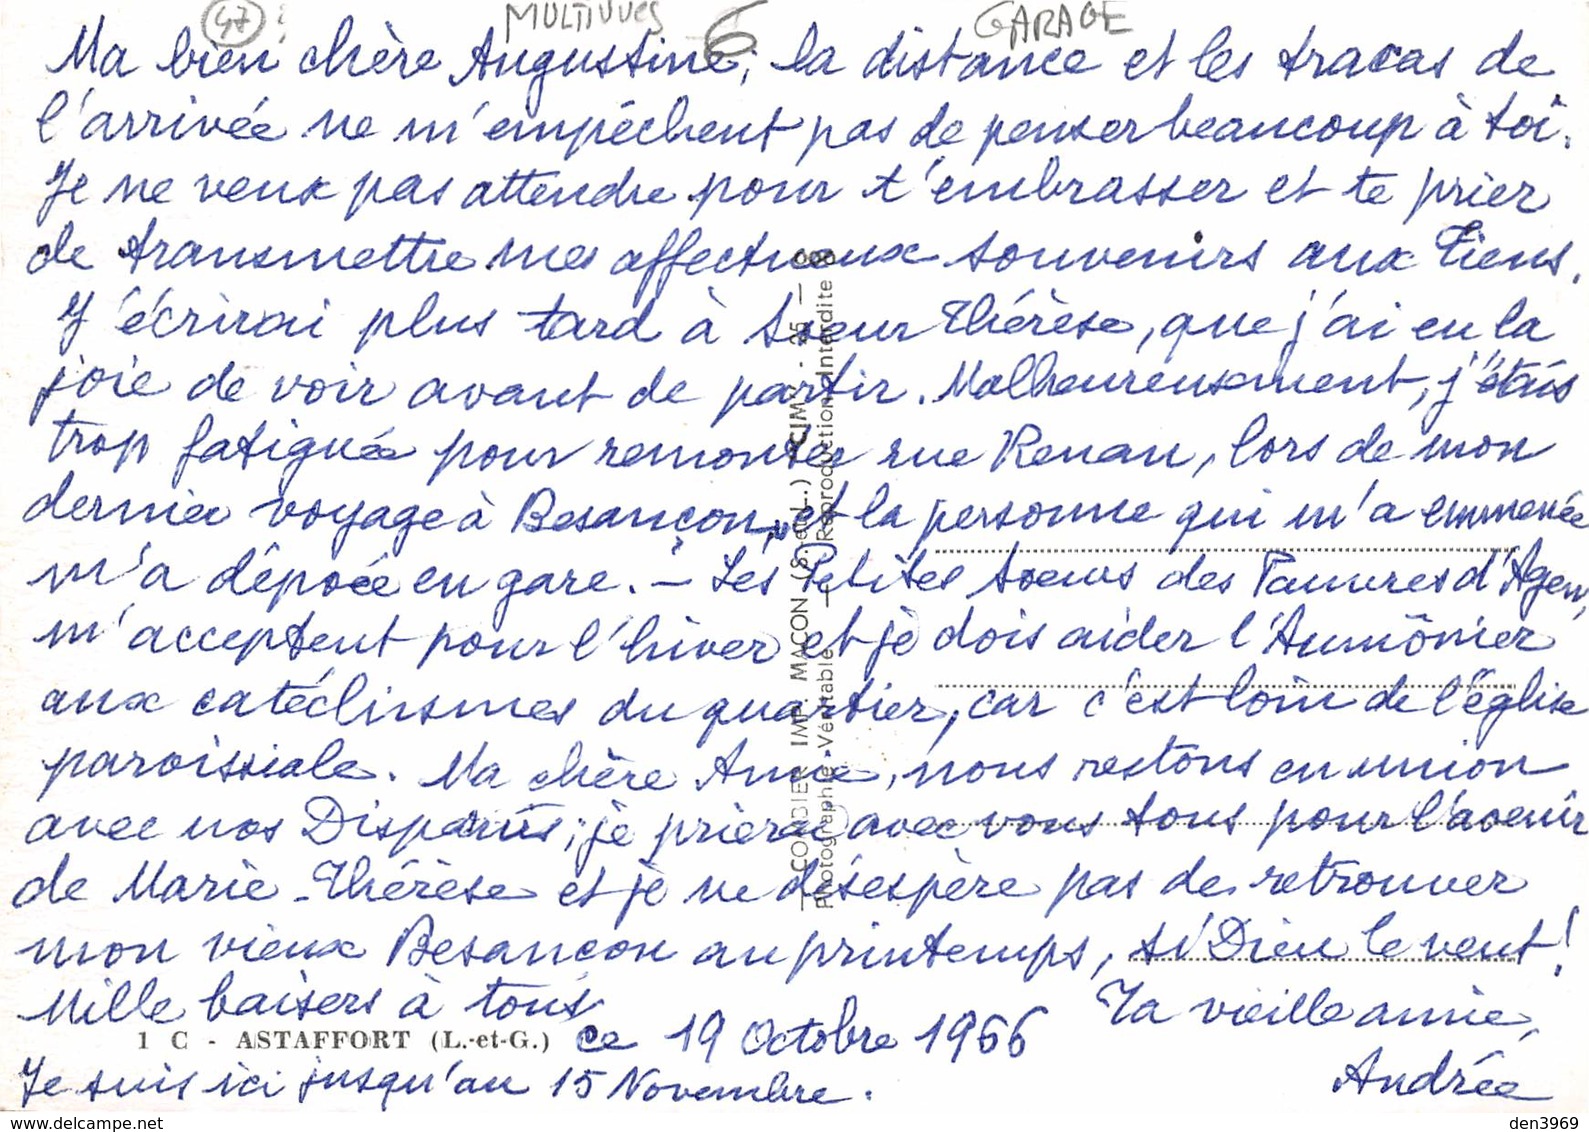 47
MULTIVUES 6 GARAGE
Ma bien chère Augustine, la distance et les tracas de
l'arrivée ne m'empêchent pas de penser beaucoup à toi.
Je ne veux pas attendre pour t'embrasser et te prier
de transmettre mes affectueux souvenirs aux Tiens.
J'écrirai plus tard à Sœur Thérèse, que j'ai eu la
joie de voir avant de partir. Malheureusement, j'étais
trop fatiguée pour remonter rue Renan, lors de mon
dernier voyage à Besançon, et la personne qui m'a emmenée
m'a déposée en gare. — Les Petites Sœurs des Pauvres d'Agen,
m'acceptent pour l'hiver et je dois aider l'Aumônier
aux catéchismes du quartier, car c'est loin de l'église
paroissiale. Ma chère Amie, nous restons en union
avec nos Disparus; je prierai avec vous tous pour l'avenir
de Marie-Thérèse et je ne désespère pas de retrouver
mon vieux Besançon au printemps, si Dieu le veut!
Mille baisers à tous Ta vieille amie,
1 C - ASTAFFORT (L.-et-G.) ce 19 Octobre 1966
Je suis ici jusqu'au 15 Novembre. Andrée
COMBIER IMP. MACON (S.-et-L.) "CIM"
Photographie Véritable — Reproduction Interdite
den3969